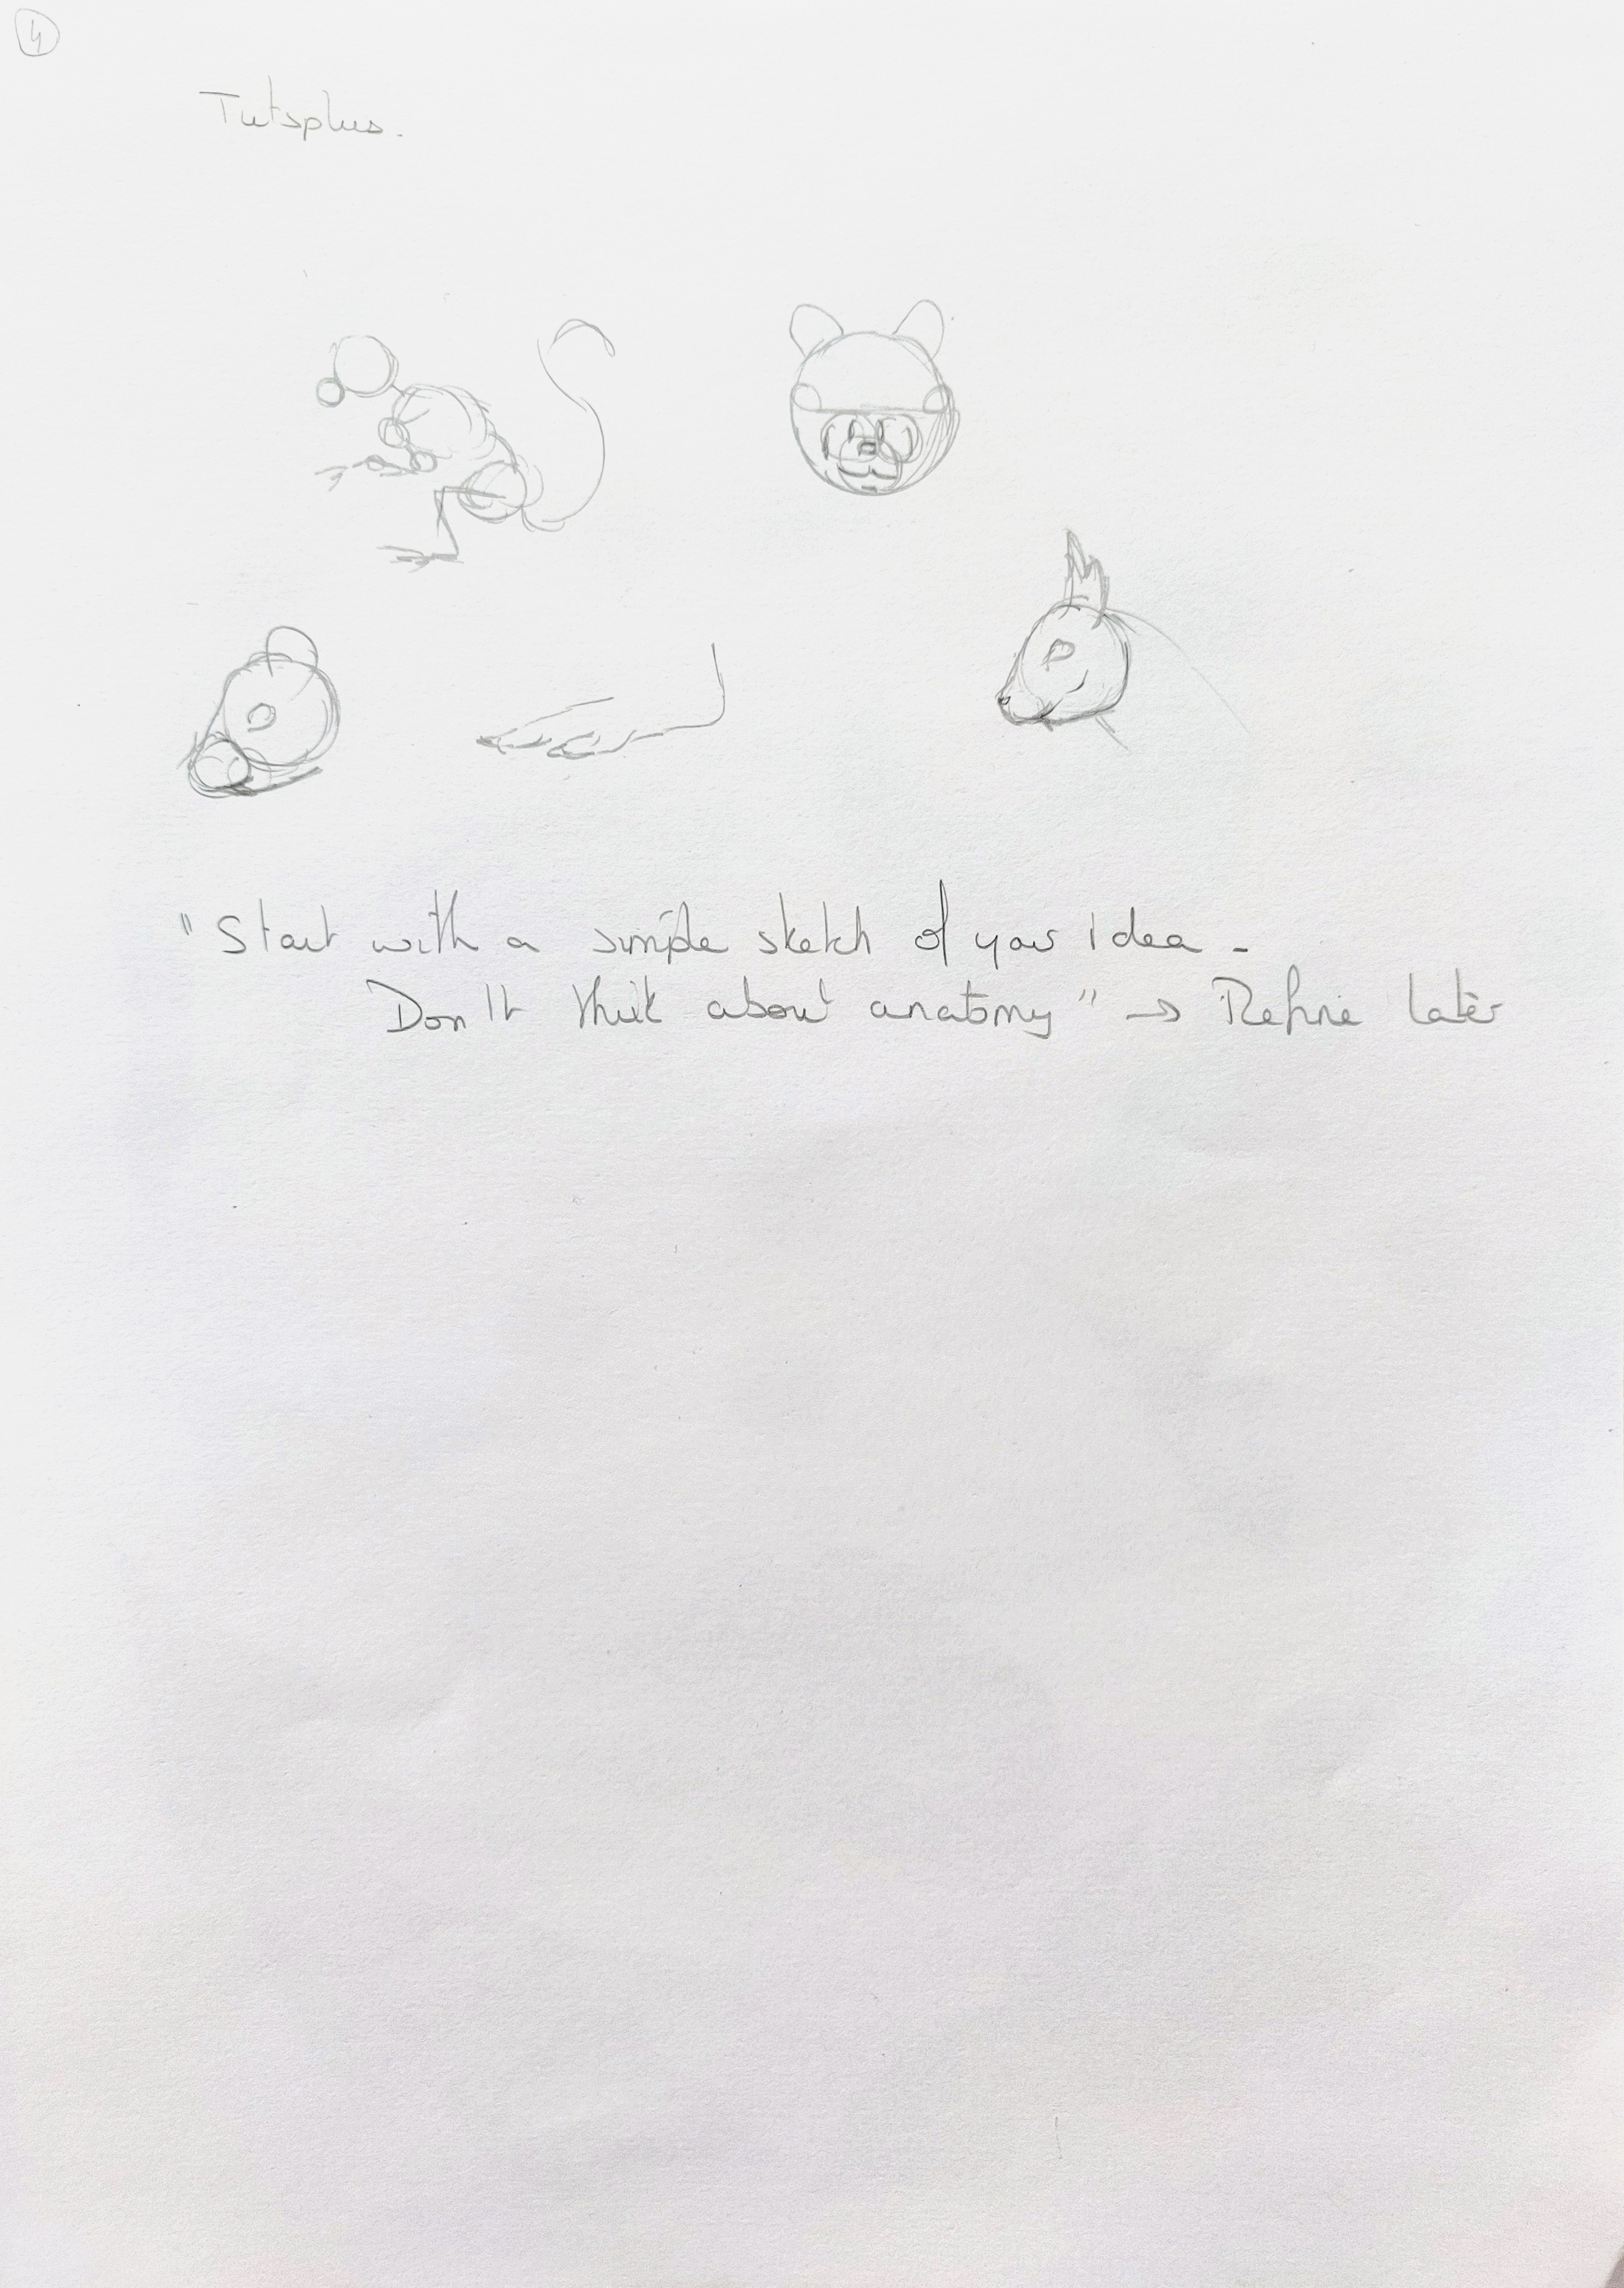 4
Tutsplus.
"Start with a simple sketch of your idea.
Don't think about anatomy" → Refine later